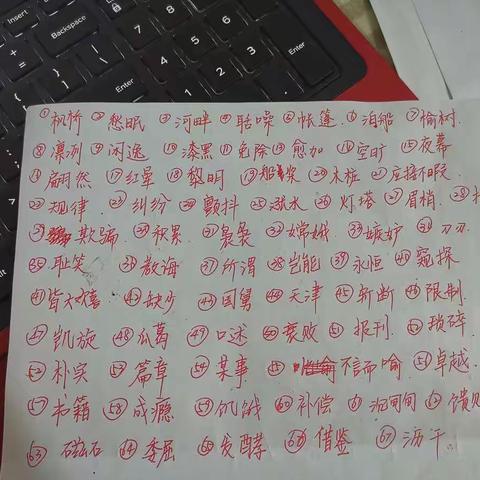 Insert
Backspace
Enter
Shift
Enter
Ctrl
①枫桥 ②愁眠 ③河畔 ④聒噪 ⑤帐篷 ⑥泊船 ⑦榆树
⑧凛冽 ⑨闲逸 ⑩漆黑 ⑪免除 ⑫愈加 ⑭空旷 ⑮夜幕
⑯翩然 ⑰红晕 ⑱黎明 ⑳木桩 ㉑应接不暇
㉒规律 ㉓纠纷 颤抖 ㉕泳水 ㉖灯塔 ㉗眉梢
欺骗 积累 ㉛袅袅 嫦娥 ㉝嫉妒
㉟耻笑 ㊱教诲 ㊲所谓 ㊳岂能 ㊴永恒 ㊵窥探
㊶皆大欢喜 ㊷缺少 ㊸国舅 ㊹天津 ㊺斩断 ㊻限制
㊼凯旋 ㊽瓜葛 ㊾口述 ㊿衰败 51报刊 52琐碎
52朴实 53篇章 54某事 55不言而喻 56卓越
57书籍 58成瘾 59饥饿 60补偿 61沉甸甸 62馈
63磁石 64委屈 65发酵 66借鉴 67沥干